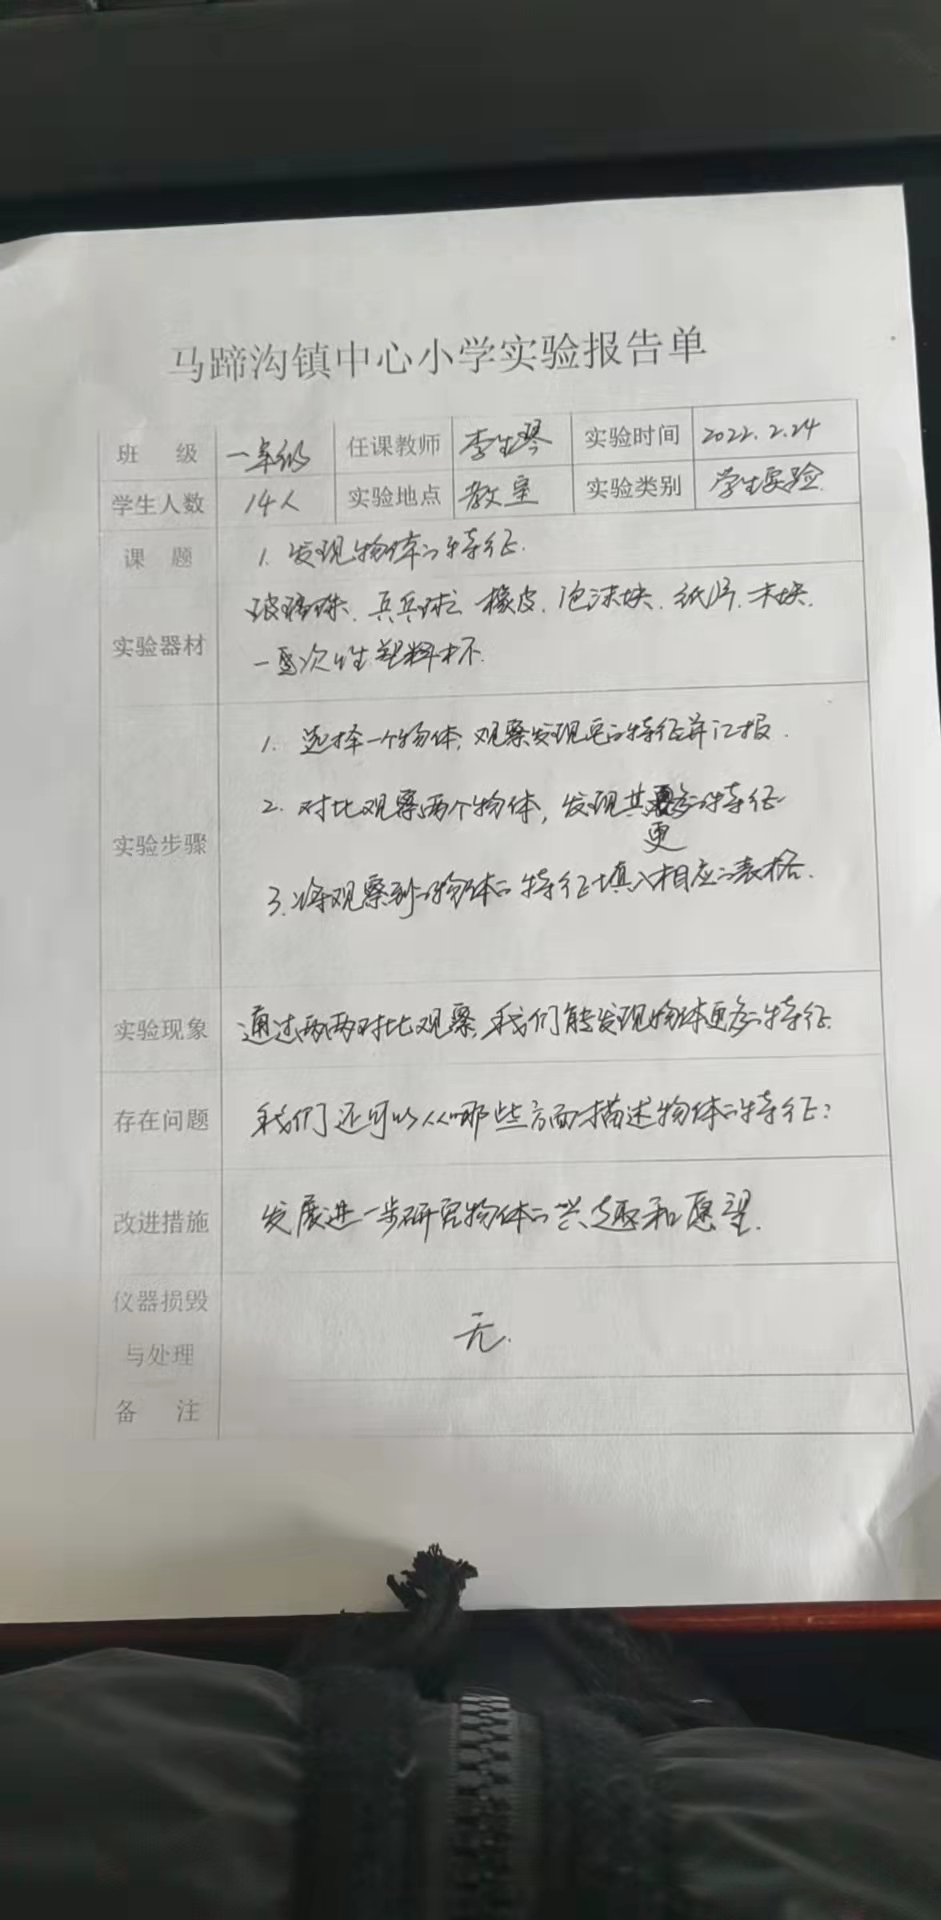 马蹄沟镇中心小学实验报告单
班 级 一年级 任课教师 李生琴 实验时间 2022.2.24
学生人数 14人 实验地点 教室 实验类别 学生实验.
课 题 1. 发现物体的特征.
实验器材
玻璃珠、乒乓球、橡皮、泡沫块、纸片、木块、
一次性塑料杯.
实验步骤
1. 选择一个物体,观察发现它的特征并汇报.
2. 对比观察两个物体,发现其更多的特征
3. 将观察到的物体的特征填入相应的表格.
实验现象 通过两两对比观察,我们能发现物体更多的特征.
存在问题 我们还可以从哪些方面描述物体的特征?
改进措施 发展进一步研究物体的兴趣和愿望.
仪器损毁
与处理
无.
备 注